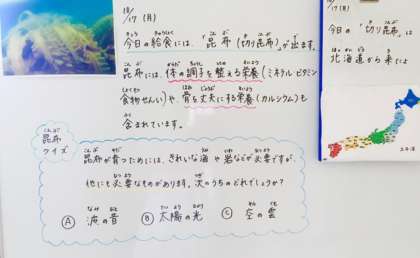 10/17 (月)
今日の給食には、「昆布(切り昆布)」が出ます。
昆布には、体の調子を整える栄養(ミネラル・ビタミン
食物せんい)や、骨を丈夫にする栄養(カルシウム)も
含まれています。
昆布
クイズ
昆布が育つためには、きれいな海や岩などが必要ですが、
他にも必要なものがあります。次のうちのどれでしょうか?
Ⓐ 波の音 Ⓑ 太陽の光 Ⓒ 空の雲
10/17 (月)
今日の「切り昆布」は
北海道から来たよ